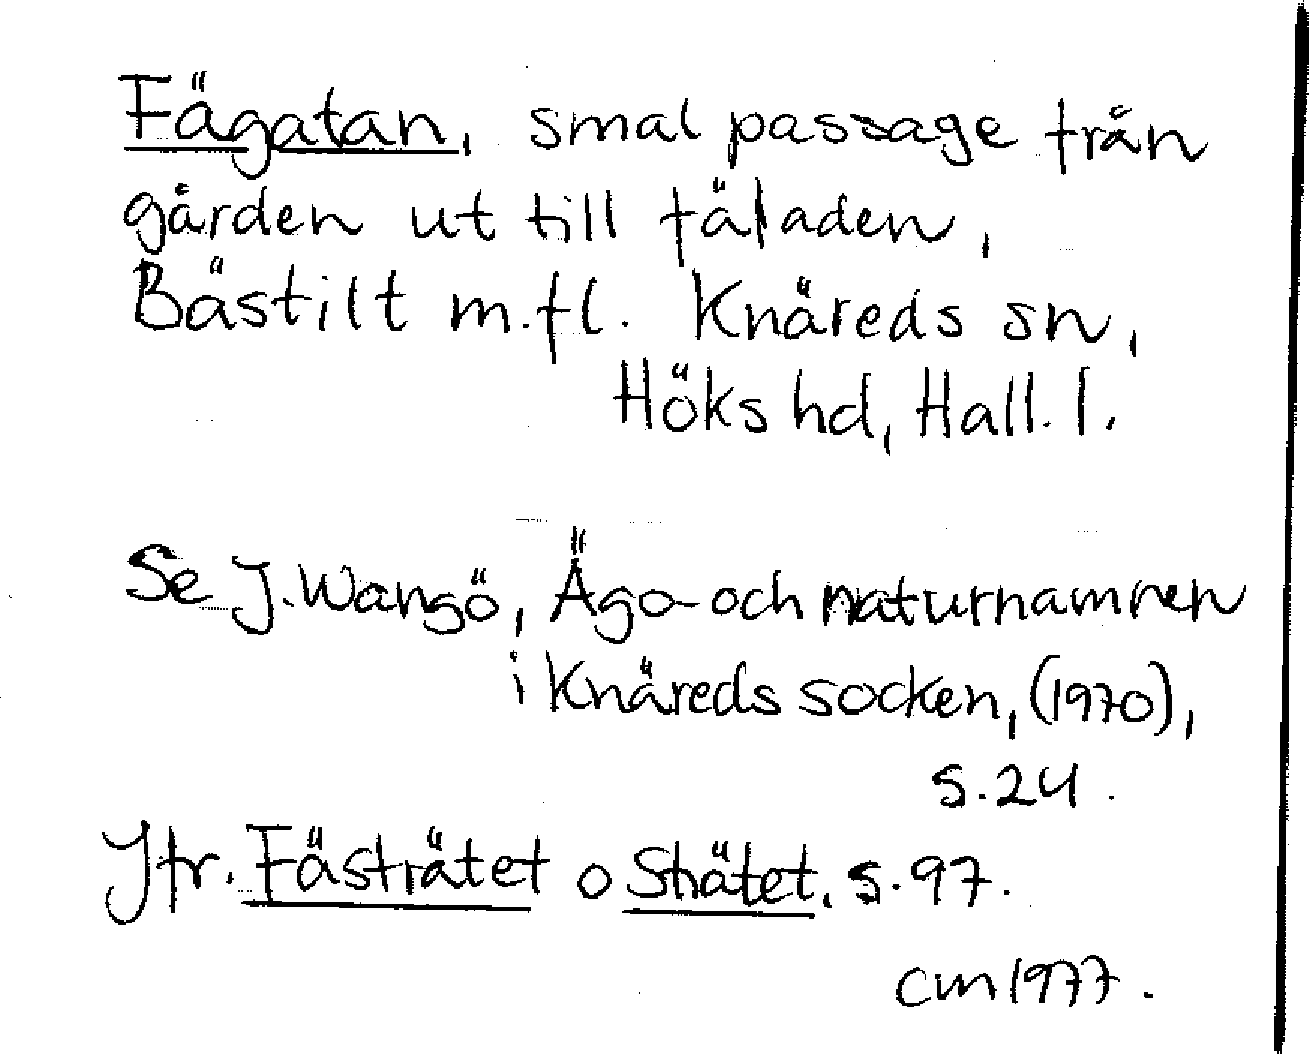 Fägatan, smal passage från
gården ut till fäladen,
Bästilt m.fl. Knäreds sn,
Höks hd, Hall. l.
Se J. Wangö, Ägo- och naturnamnen
i Knäreds socken, (1970),
s. 24.
Jfr. Fästrätet o Strätet, s. 97.
cm 1977.